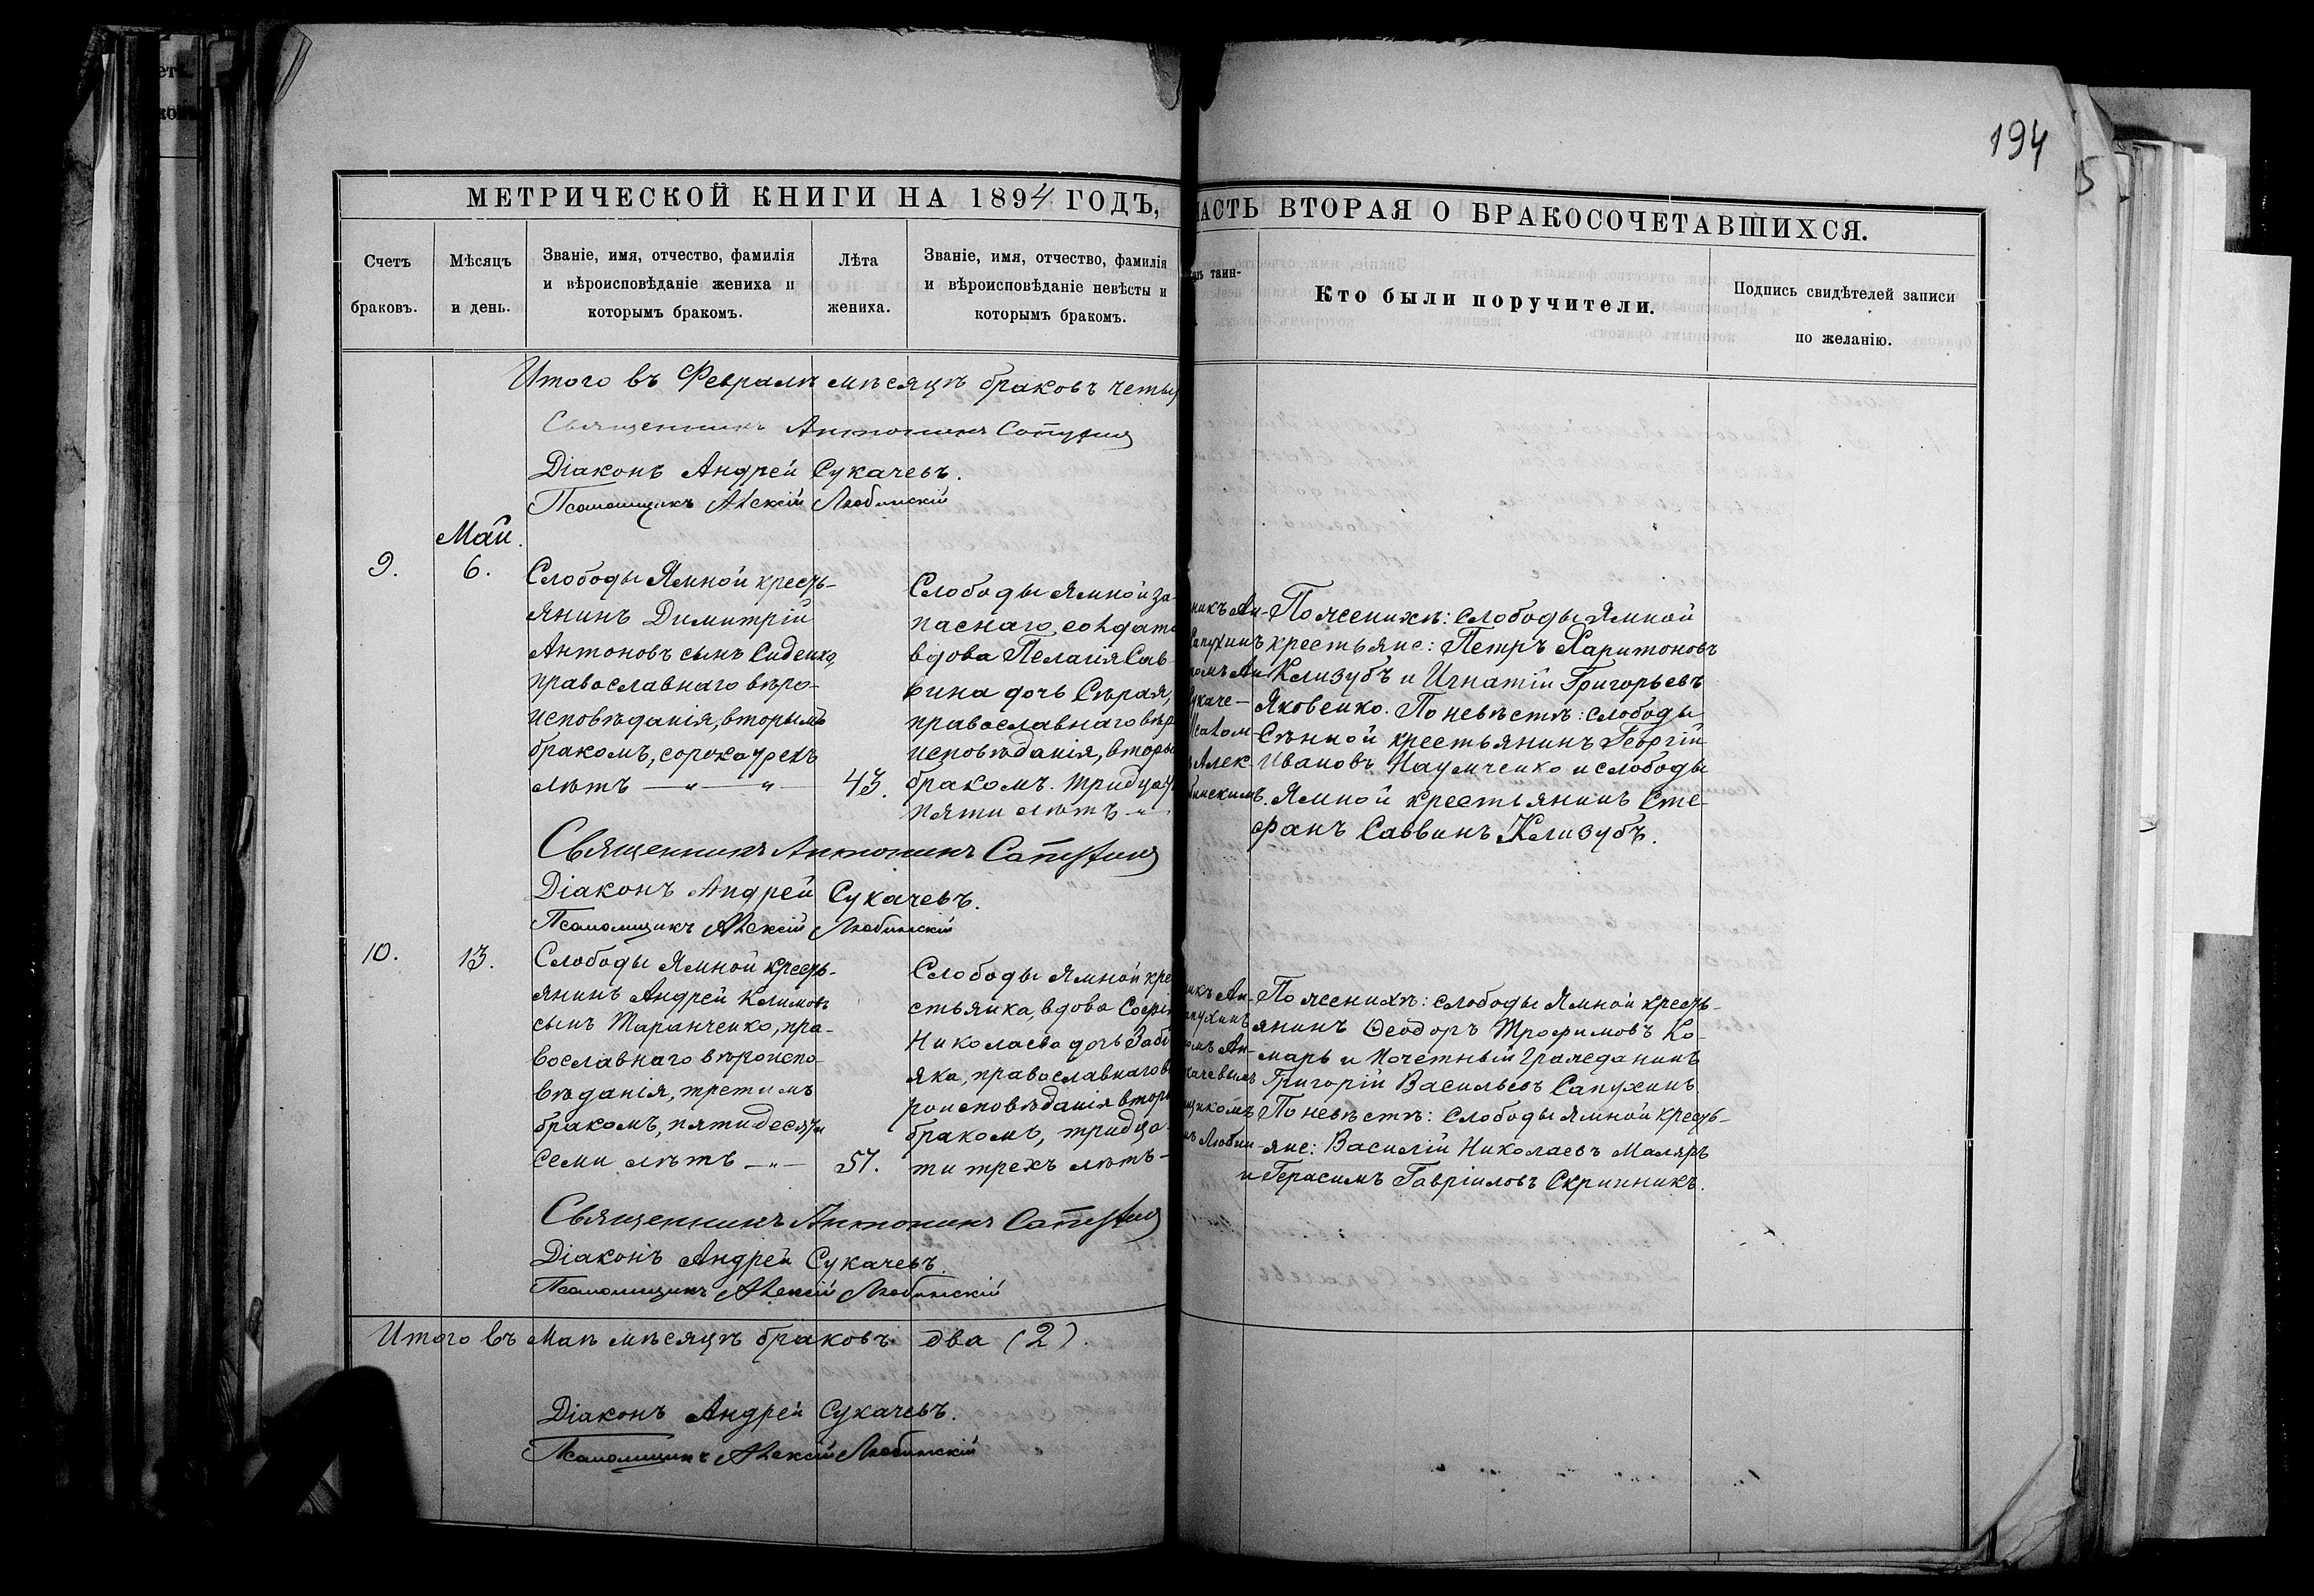 194
МЕТРИЧЕСКОЙ КНИГИ НА 1894 ГОДЪ,
АСТЬ ВТОРАЯ О БРАКОСОЧЕТАВШИХСЯ.
Счетъ
браковъ.
Мѣсяцъ
и день.
Званіе, имя, отчество, фамилія
и вѣроисповѣданіе жениха и
которымъ бракомъ.
Лѣта
жениха.
Званіе, имя, отчество, фамилія
и вѣроисповѣданіе невѣсты и
которымъ бракомъ.
таин-
Кто были поручители.
Подпись свидѣтелей записи
по желанію.
Итого въ Февралѣ мѣсяцѣ браковъ четы
Священникъ Антонинъ Сапухин
Діаконъ Андрей Сукачевъ.
Псаломщикъ Алексій Любинскій
Май.
9.
6.
Слободы Ямной кресть-
янинъ Димитрій
Антоновъ сынъ Сиденко,
православнаго вѣро-
исповѣданія, вторымъ
бракомъ, сорока трехъ
лѣтъ — „ — „ —
43.
Слободы Ямной за-
паснаго солдата
вдова Пелагія Сав-
вина дочь Сѣрая,
православнаго вѣр
исповѣданія, вторы
бракомъ. тридцат
пяти лѣтъ - „ -
никъ Ан-
Сапухинъ
омъ Ан
укаче-
Псалом
Алек-
бинскимъ.
По женихѣ: слободы Ямной
крестьяне: Петръ Харитоновъ
Клизубъ и Игнатій Григорьевъ
Яковенко. По невѣстѣ: слободы
Сѣнной крестьянинъ Георгій
Ивановъ Наумченко и слободы
Ямной крестьянинъ Сте-
фанъ Саввинъ Клизубъ.
Священникъ Антонинъ Сапухин
Діаконъ Андрей Сукачевъ.
Псаломщикъ Алексій Любинскій
10.
13.
Слободы Ямной кресть-
янинъ Андрей Климовъ
сынъ Таранченко, пра-
вославнаго вѣроиспо-
вѣданія, третимъ
бракомъ, пятидесяти
семи лѣтъ — „ —
57.
Слободы Ямной кре
стьянка, вдова Софі
Николаева дочь Заб
яка, православнаго в
роисповѣданія втор
бракомъ, тридца-
ти трехъ лѣтъ -
икъ Ан-
апухинъ
омъ Ан-
качевымъ
щикомъ
Любин
По женихѣ: слободы Ямной кресть-
янинъ Ѳеодоръ Трофимовъ Ко-
марь и Почетный Гражданинъ
Григорій Васильевъ Сапухинъ
По невѣстѣ: Слободы Ямной кресть-
яне: Василій Николаевъ Маляръ
и Герасимъ Гавріиловъ Скрипникъ.
Священникъ Антонинъ Сапухин
Діаконъ Андрей Сукачевъ.
Псаломщикъ Алексій Любинскій
Итого въ Маѣ мѣсяцѣ браковъ два (2).
Діаконъ Андрей Сукачевъ.
Псаломщикъ Алексій Любинскій